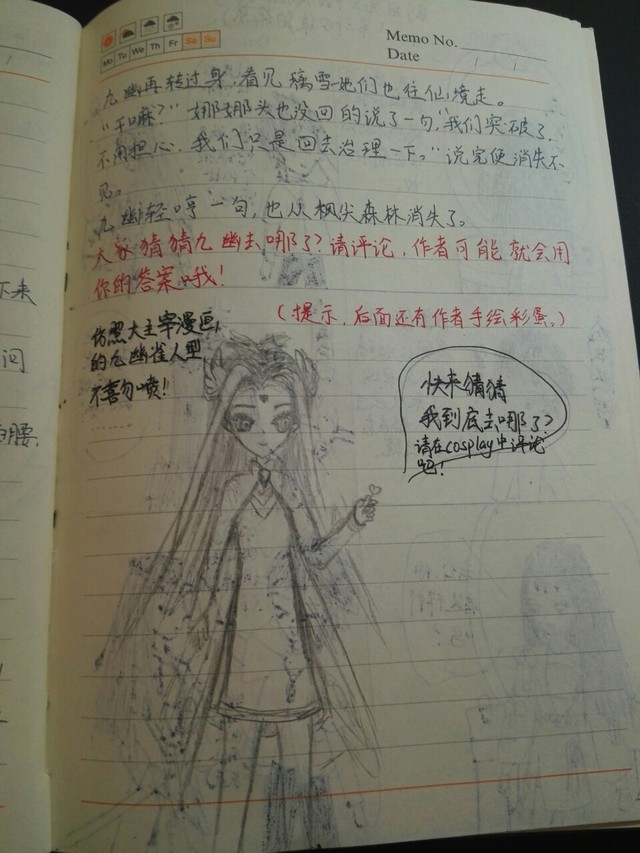 Memo No.
Mo Tu We Th Fr Sa Su
Date / /
九幽再转过身,看见璃雪她们也往仙境走。
"干嘛?"娜娜头也没回的说了一句,"我们突破了,
不用担心,我们只是回去治理一下。"说完便消失不
见。
九幽轻哼一句,也从枫尖森林消失了。
大家猜猜九幽去哪了?请评论,作者可能就会用
你的答案哦!
(提示,后面还有作者手绘彩蛋。)
仿照大主宰漫画,
的九幽雀人型
不喜勿喷!
快来猜猜
我到底去哪了?
请在cosplay中评论
吧!
下来
问
腰.